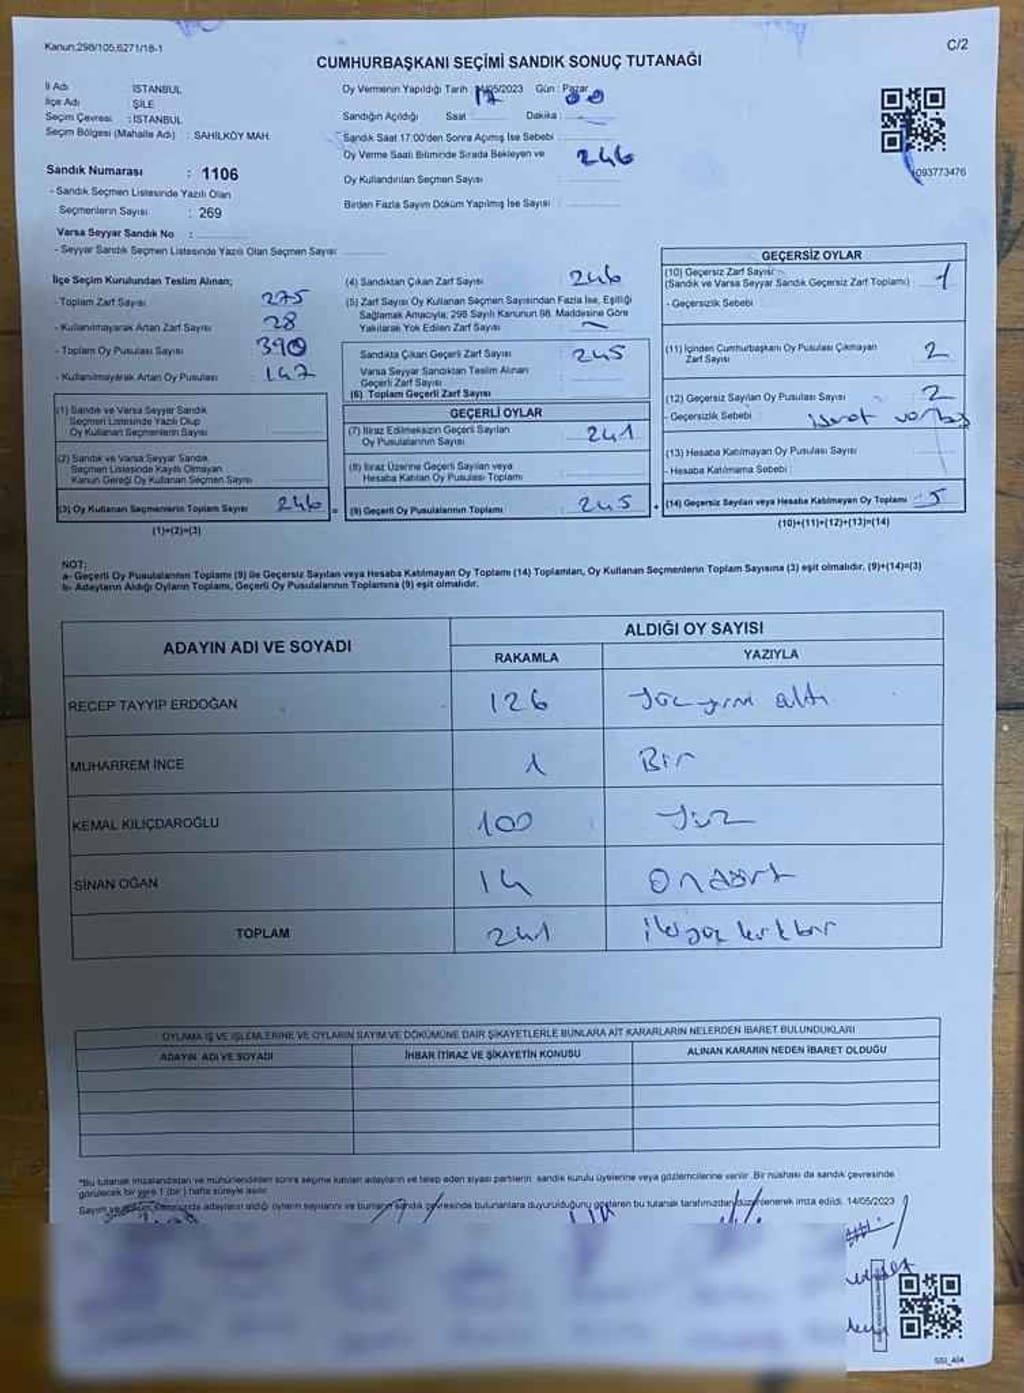 Kanun:298/105,6271/18-1
C/2
CUMHURBAŞKANI SEÇİMİ SANDIK SONUÇ TUTANAĞI
İl Adı : İSTANBUL
İlçe Adı : ŞİLE
Seçim Çevresi : İSTANBUL
Seçim Bölgesi (Mahalle Adı) : SAHİLKÖY MAH.
Sandık Numarası : 1106
- Sandık Seçmen Listesinde Yazılı Olan
Seçmenlerin Sayısı : 269
Varsa Seyyar Sandık No :
- Seyyar Sandık Seçmen Listesinde Yazılı Olan Seçmen Sayısı
Oy Vermenin Yapıldığı Tarih : /05/2023 Gün : Pazar
Sandığın Açıldığı Saat 17 Dakika : 00
Sandık Saat 17:00'den Sonra Açılmış İse Sebebi
Oy Verme Saati Bitiminde Sırada Bekleyen ve
Oy Kullandırılan Seçmen Sayısı 246
Birden Fazla Sayım Döküm Yapılmış İse Sayısı
1093773476
İlçe Seçim Kurulundan Teslim Alınan;
- Toplam Zarf Sayısı : 275
- Kullanılmayarak Artan Zarf Sayısı : 28
- Toplam Oy Pusulası Sayısı : 390
- Kullanılmayarak Artan Oy Pusulası : 147
(1) Sandık ve Varsa Seyyar Sandık
Seçmen Listesinde Yazılı Olup
Oy Kullanan Seçmenlerin Sayısı
(2) Sandık ve Varsa Seyyar Sandık
Seçmen Listesinde Kayıtlı Olmayan
Kanun Gereği Oy Kullanan Seçmen Sayısı
(3) Oy Kullanan Seçmenlerin Toplam Sayısı 246 =
(1)+(2)=(3)
(4) Sandıktan Çıkan Zarf Sayısı 246
(5) Zarf Sayısı Oy Kullanan Seçmen Sayısından Fazla İse, Eşitliği
Sağlamak Amacıyla; 298 Sayılı Kanunun 98. Maddesine Göre
Yakılarak Yok Edilen Zarf Sayısı
Sandıkta Çıkan Geçerli Zarf Sayısı 245
Varsa Seyyar Sandıktan Teslim Alınan
Geçerli Zarf Sayısı
(6) Toplam Geçerli Zarf Sayısı
GEÇERLİ OYLAR
(7) İtiraz Edilmeksizin Geçerli Sayılan
Oy Pusulalarının Sayısı 241
(8) İtiraz Üzerine Geçerli Sayılan veya
Hesaba Katılan Oy Pusulası Toplamı
(9) Geçerli Oy Pusulalarının Toplamı 245 +
GEÇERSİZ OYLAR
(10) Geçersiz Zarf Sayısı
(Sandık ve Varsa Seyyar Sandık Geçersiz Zarf Toplamı) : 1
- Geçersizlik Sebebi
(11) İçinden Cumhurbaşkanı Oy Pusulası Çıkmayan
Zarf Sayısı 2
(12) Geçersiz Sayılan Oy Pusulası Sayısı 2
- Geçersizlik Sebebi :
(13) Hesaba Katılmayan Oy Pusulası Sayısı
- Hesaba Katılmama Sebebi :
(14) Geçersiz Sayılan veya Hesaba Katılmayan Oy Toplamı 5
(10)+(11)+(12)+(13)=(14)
NOT:
a- Geçerli Oy Pusulalarının Toplamı (9) ile Geçersiz Sayılan veya Hesaba Katılmayan Oy Toplamı (14) Toplamları, Oy Kullanan Seçmenlerin Toplam Sayısına (3) eşit olmalıdır, (9)+(14)=(3)
b- Adayların Aldığı Oyların Toplamı, Geçerli Oy Pusulalarının Toplamına (9) eşit olmalıdır.
ADAYIN ADI VE SOYADI
ALDIĞI OY SAYISI
RAKAMLA
YAZIYLA
RECEP TAYYİP ERDOĞAN 126 Yüzyirmi altı
MUHARREM İNCE 1 Bir
KEMAL KILIÇDAROĞLU 100 Yüz
SİNAN OĞAN 14 Ondört
TOPLAM 241 ikiyüz kırkbir
OYLAMA İŞ VE İŞLEMLERİNE VE OYLARIN SAYIM VE DÖKÜMÜNE DAİR ŞİKAYETLERLE BUNLARA AİT KARARLARIN NELERDEN İBARET BULUNDUKLARI
ADAYIN ADI VE SOYADI
İHBAR İTİRAZ VE ŞİKAYETİN KONUSU
ALINAN KARARIN NEDEN İBARET OLDUĞU
*Bu tutanak imzalandıktan ve mühürlendikten sonra seçime katılan adayların ve talep eden siyasi partilerin sandık kurulu üyelerine veya gözlemcilerine verilir. Bir nüshası da sandık çevresinde
görülecek bir yere 1 (bir) hafta süreyle asılır.
adayların aldığı oyların sayılarını ve bunların sandık çevresinde bulunanlara duyurulduğunu gösteren bu tutanak tarafımızdan düzenlenerek imza edildi. 14/05/2023